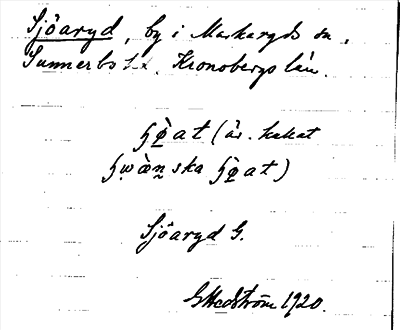 Sjöaryd, by i Markaryds sn,
Sunnerbo hd. Kronobergs län.
ɧø̀at (är. kakat
ɧwæ̀n̠ska ɧø̀at)
Sjöaryd G.
GHedström 1920.